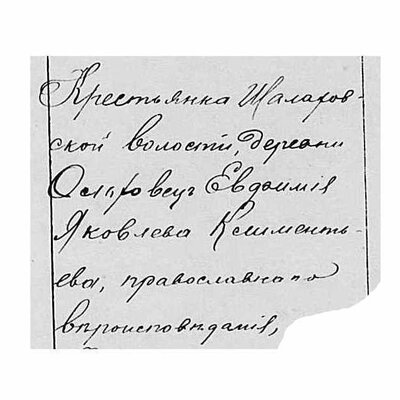 Крестьянка Шаларов-
ской волости, деревни
Евдокимiя
Яковлева Климентъ-
ева, православнаго
вѣроисповѣданiя,